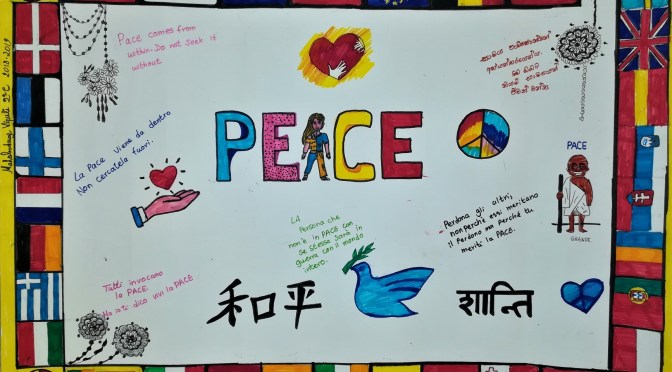 2018-2019
Pace comes from
within. Do not seek it
without
සාමය
PEACE
La Pace viene da dentro
Non cercatela fuori.
PACE
LA
Persona che
non è in PACE con
se stessa sarà in
guerra con il mondo
intero.
- Perdona gli altri,
non perché essi meritano
il Perdono ma perché tu
meriti la PACE.
Tutti invocano
la PACE.
Ma io ti dico vivi la PACE
和平
शान्ति